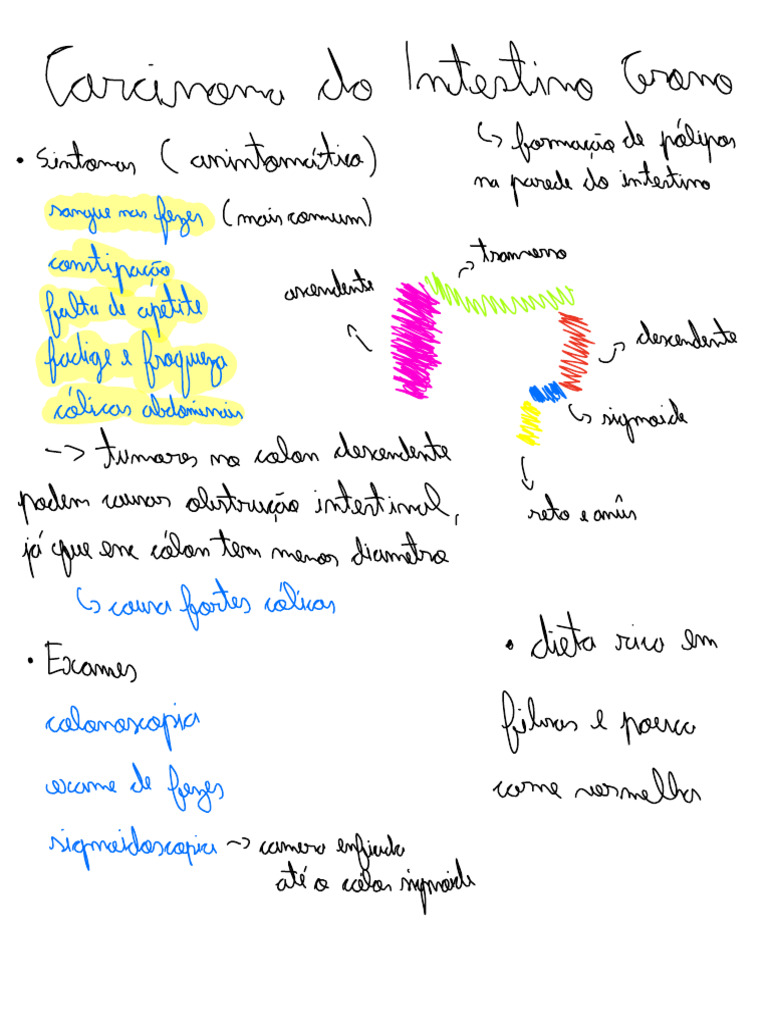 Carcinoma do Intestino Grosso
• Sintomas (assintomático)
↳ formação de pólipos
na parede do intestino
sangue nas fezes (mais comum)
constipação
falta de apetite
fadiga e fraqueza
cólicas abdominais
transverso
ascendente
descendente
sigmoide
reto e anûs
-> tumores no colon descendente
podem causar obstrução intestinal,
já que esse cólon tem menos diametro
↳ causa fortes cólicas
• Exames
colonoscopia
exame de fezes
sigmoidoscopia -> camera enfiada
até o cólon sigmoide
• dieta rica em
fibras e pouca
carne vermelha